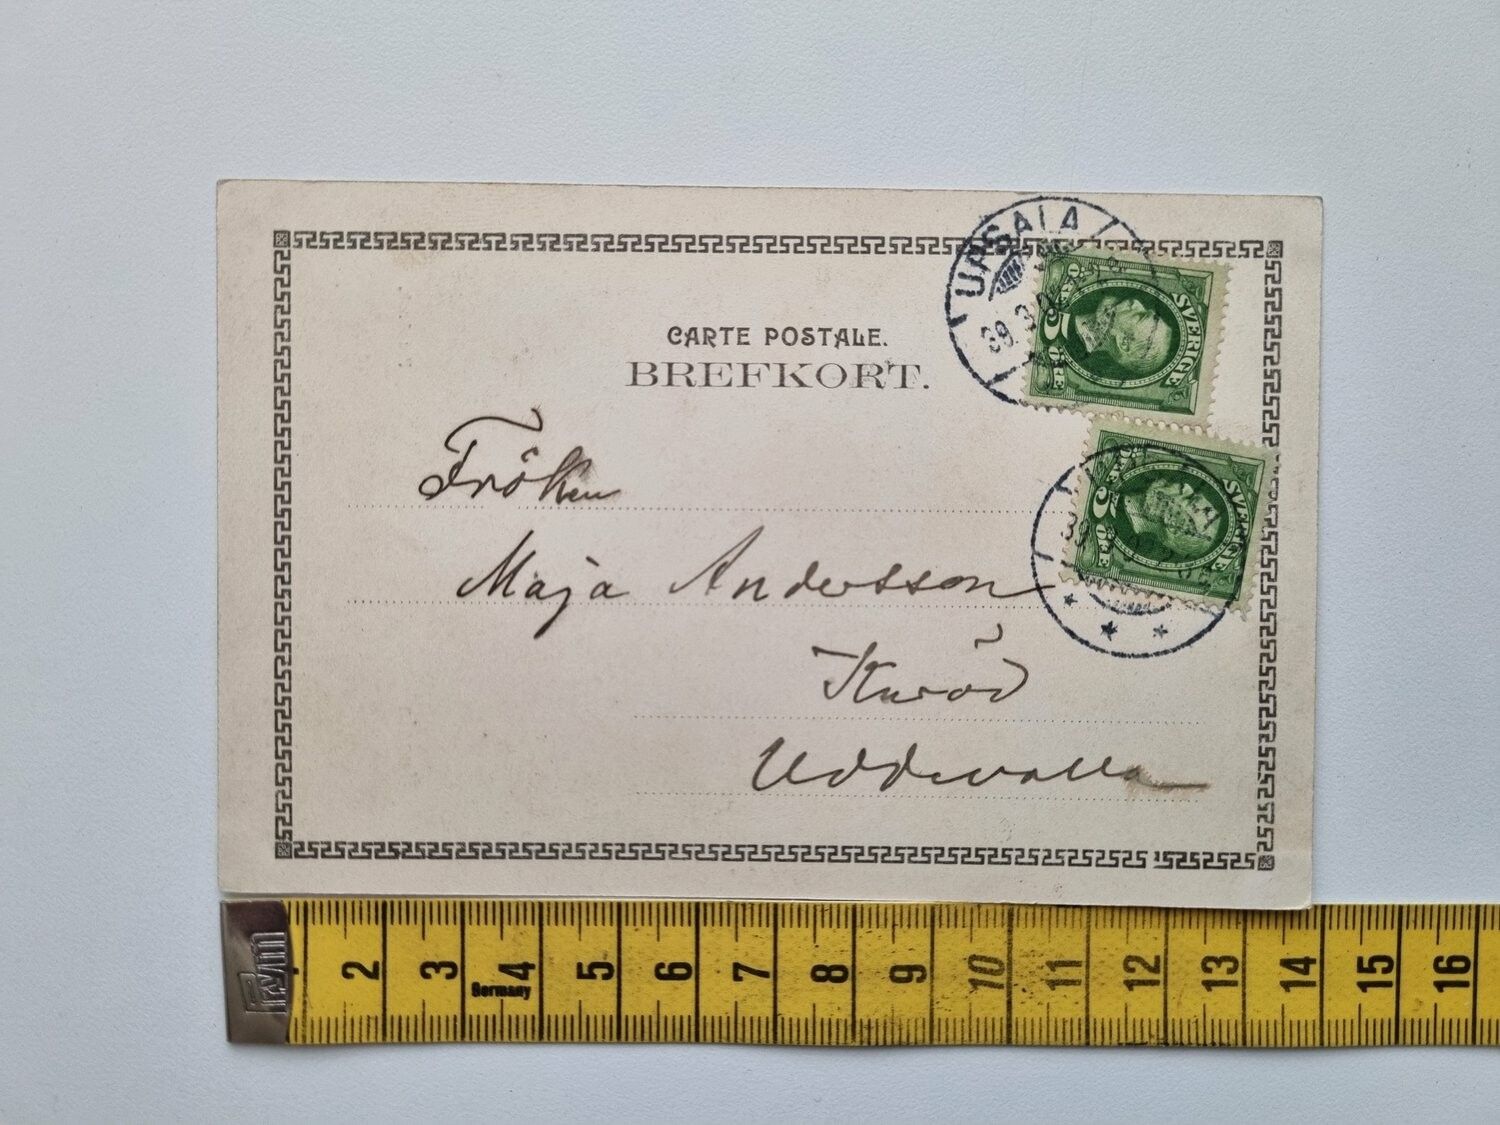 UPSALA
CARTE POSTALE.
BREFKORT.
SVERIGE
5
ÖRE
SVERIGE
5
ÖRE
Fröken
Maja Andersson
Kuröd
Uddevalla
Prym
2 3 4 5 6 7 8 9 10 11 12 13 14 15 16
Germany